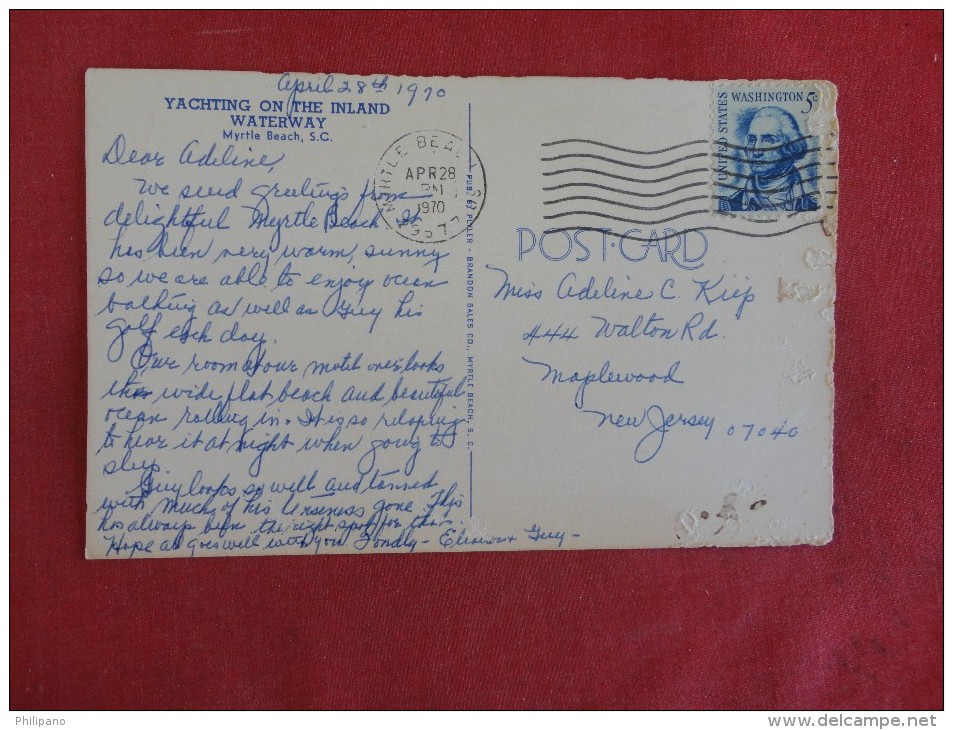 April 28th 1970
YACHTING ON THE INLAND
WATERWAY
Myrtle Beach, S.C.
Dear Adeline,
We send greetings from
delightful Myrtle Beach. It
has been very warm, sunny
so we are able to enjoy ocean
bathing as well as Guy his
golf each day.
Our room at our motel overlooks
the wide, flat beach and beautiful
ocean rolling in. It is so relaxing
to hear it at night when going to
sleep.
Guy looks so well and tanned
with much of his tenseness gone. This
has always been the right spot for that.
Hope all goes well with you Fondly - Eleanor & Guy -
MYRTLE BEACH
APR 28
PM
1970
29577
PUB. BY PEELER - BRANDON SALES CO., MYRTLE BEACH, S. C.
UNITED STATES
WASHINGTON 5c
POST-CARD
Miss Adeline C. Kiep
444 Walton Rd.
Maplewood
New Jersey 07040
Philipano
www.delcampe.net